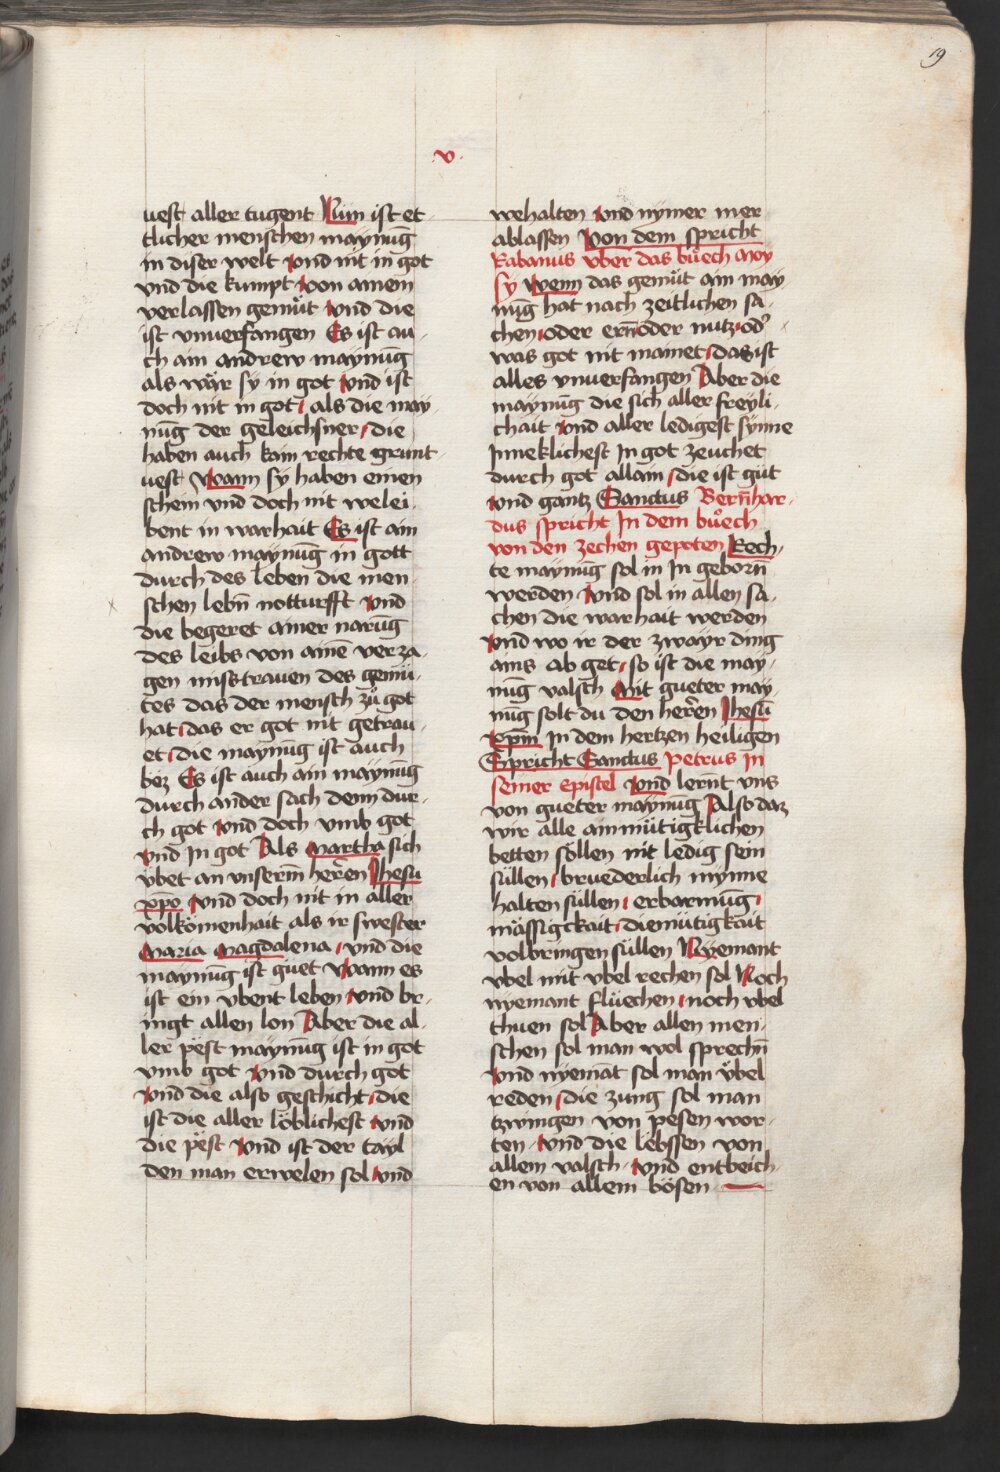 19
v.
uest aller tugent Nun ist et
tlicher menschen maynūg
in diser welt vnd nit in got
vnd die kumpt von ainem
verlassen gemüt vnd die
ist vnuerfangen Es ist au
ch ain andrew maynūg
als wär sy in got vnd ist
doch nit in got als die may
nūg der geleichsner die
haben auch kain rechte grunt
uest Wann sy haben einen
schein vnd doch nit welei
bent in warhait Es ist ain
andrew maynūg in gott
durch des leben die men
schen lebn̄ notturfft vnd
die begeret ainer narūg
des leibs von ainē verza
gen misstrauen des gemü
tes das der mensch zů got
hat das er got nit getrau
et die maynūg ist auch
bez Es ist auch ain maynūg
durch ander sach denn dur
ch got vnd doch vmb got
vnd In got Als Martha sich
vbet an vnserm̄ her̄en Jhesu
xp̄o vnd doch nit in aller
volkömenhait als ir swester
Maria Magdalena vnd die
maynūg ist guet Wann es
ist ein vbent leben vnd br
ingt allen lon Aber die al
ler pest maynūg ist in got
vmb got vnd durch got
vnd die also geschicht die
ist die aller löblichest vnd
die pest vnd ist der tayl
den man erwelen sol vnd
wehalten vnd nymer mer
ablassen Von dem spricht
Rabanus vber das bůech Moy
sy Wenn das gemüt ain may
nūg hat nach zeitlichen sa
chen oder ern̄ oder nutz od'
was got nit mainet das ist
alles vnuerfangen Aber die
maynūg die sich aller freyli
chait vnd aller ledigest synne
Inneklichest In got zeuchet
durch got allain die ist gůt
vnd gantz Sanctus Bern̄har
dus spricht In dem bůech
von den zechen gepoten Rech
te maynūg sol in In geborn̄
werden vnd sol in allen sa
chen die warhait werden
Vnd wo ir der zwayr ding
ains ab get so ist die may
nūg valsch Mit gueter may
nūg solt du den her̄en Jhesū
xp̄m In dem hertzen heiligen
Spricht Sanctus Petrus In
seiner Epistel Vnd lern̄t vns
von gueter maynūg Also daz
wir alle ainmütigklichen
betten söllen nit ledig sein
süllen bruederlich mynne
halten süllen erbarmūg
mässigckait diemütigkait
volbringen süllen Nyemant
vbel mit vbel rechen sol Noch
nyemant flüechen noch vbel
thuen sol Aber allen men
schen sol man wol sprechn̄
Vnd nyemat sol man vbel
reden die zung sol man
tzwingen von pesen wor
ten Vnd die lebssen von
allem valsch Vnd entbeich
en von allem bösen